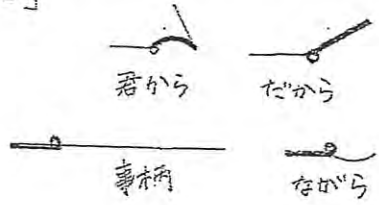 」
君から
だから
事柄
ながら